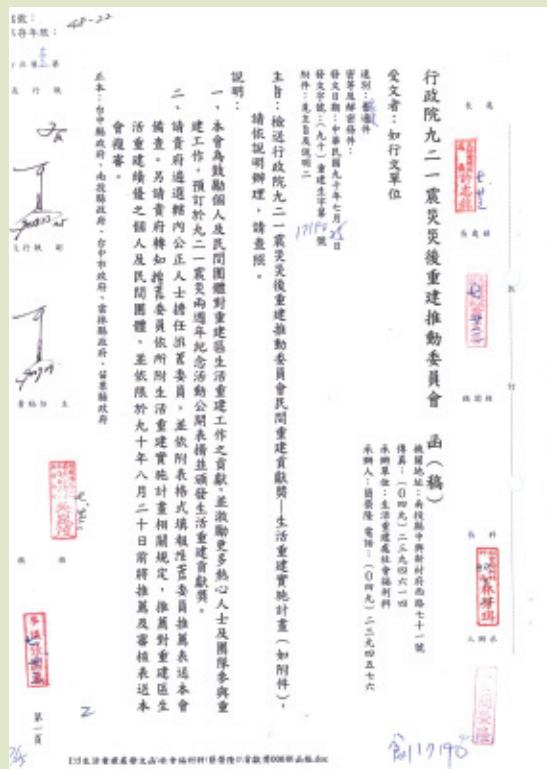 行政院九二一震災災後重建推動委員會　函（稿）
機關地址：南投縣中興新村府西路七十一號
傳真：（０四九）二三九四六一四
承辦單位：生活重建處社會福利科
承辦人：簡榮隆　電話：（０四九）二三九四五七六
受文者：如行文單位
速別：普通件
密等及解密條件：
發文日期：中華民國九十年七月　日
發文字號：（九十）重建生字第17190號
附件：見主旨及說明二
主旨：檢送行政院九二一震災災後重建推動委員會民間重建貢獻獎—生活重建實施計畫（如附件），
請依說明辦理，請查照。
說明：
一、本會為鼓勵個人及民間團體對重建區生活重建工作之貢獻，並激勵更多熱心人士及團隊參與重
建工作，預訂於九二一震災兩週年紀念活動公開表揚並頒發生活重建貢獻獎。
二、請貴府遴選轄內公正人士擔任推薦委員，並依附表格式填報推薦委員推薦表送本會
備查。另請貴府轉知推薦委員依所附生活重建實施計畫相關規定，推薦對重建區生
活重建績優之個人及民間團體，並依限於九十年八月二十日前將推薦及審核表送本
會複審。
正本：台中縣政府、南投縣政府、台中市政府、雲林縣政府、苗栗縣政府
48-22
第一頁
2
創17190